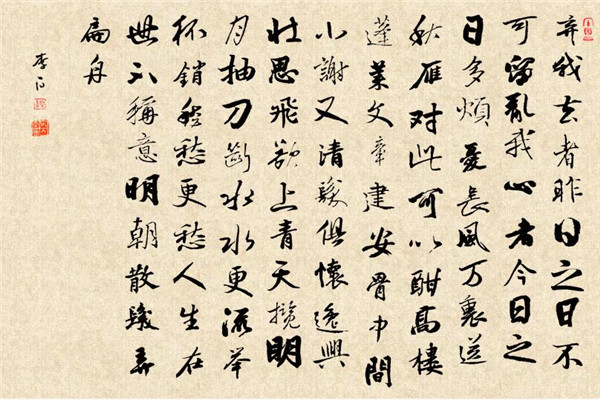 弃我去者昨日之日不
可留亂我心者今日之
日多煩憂長風万裏送
秋雁对此可以酣高樓
蓬莱文章建安骨中間
小謝又清發俱懷逸興
壮思飛欲上青天揽明
月抽刀斷水水更流举
杯銷愁愁更愁人生在
世不稱意明朝散發弄
扁舟